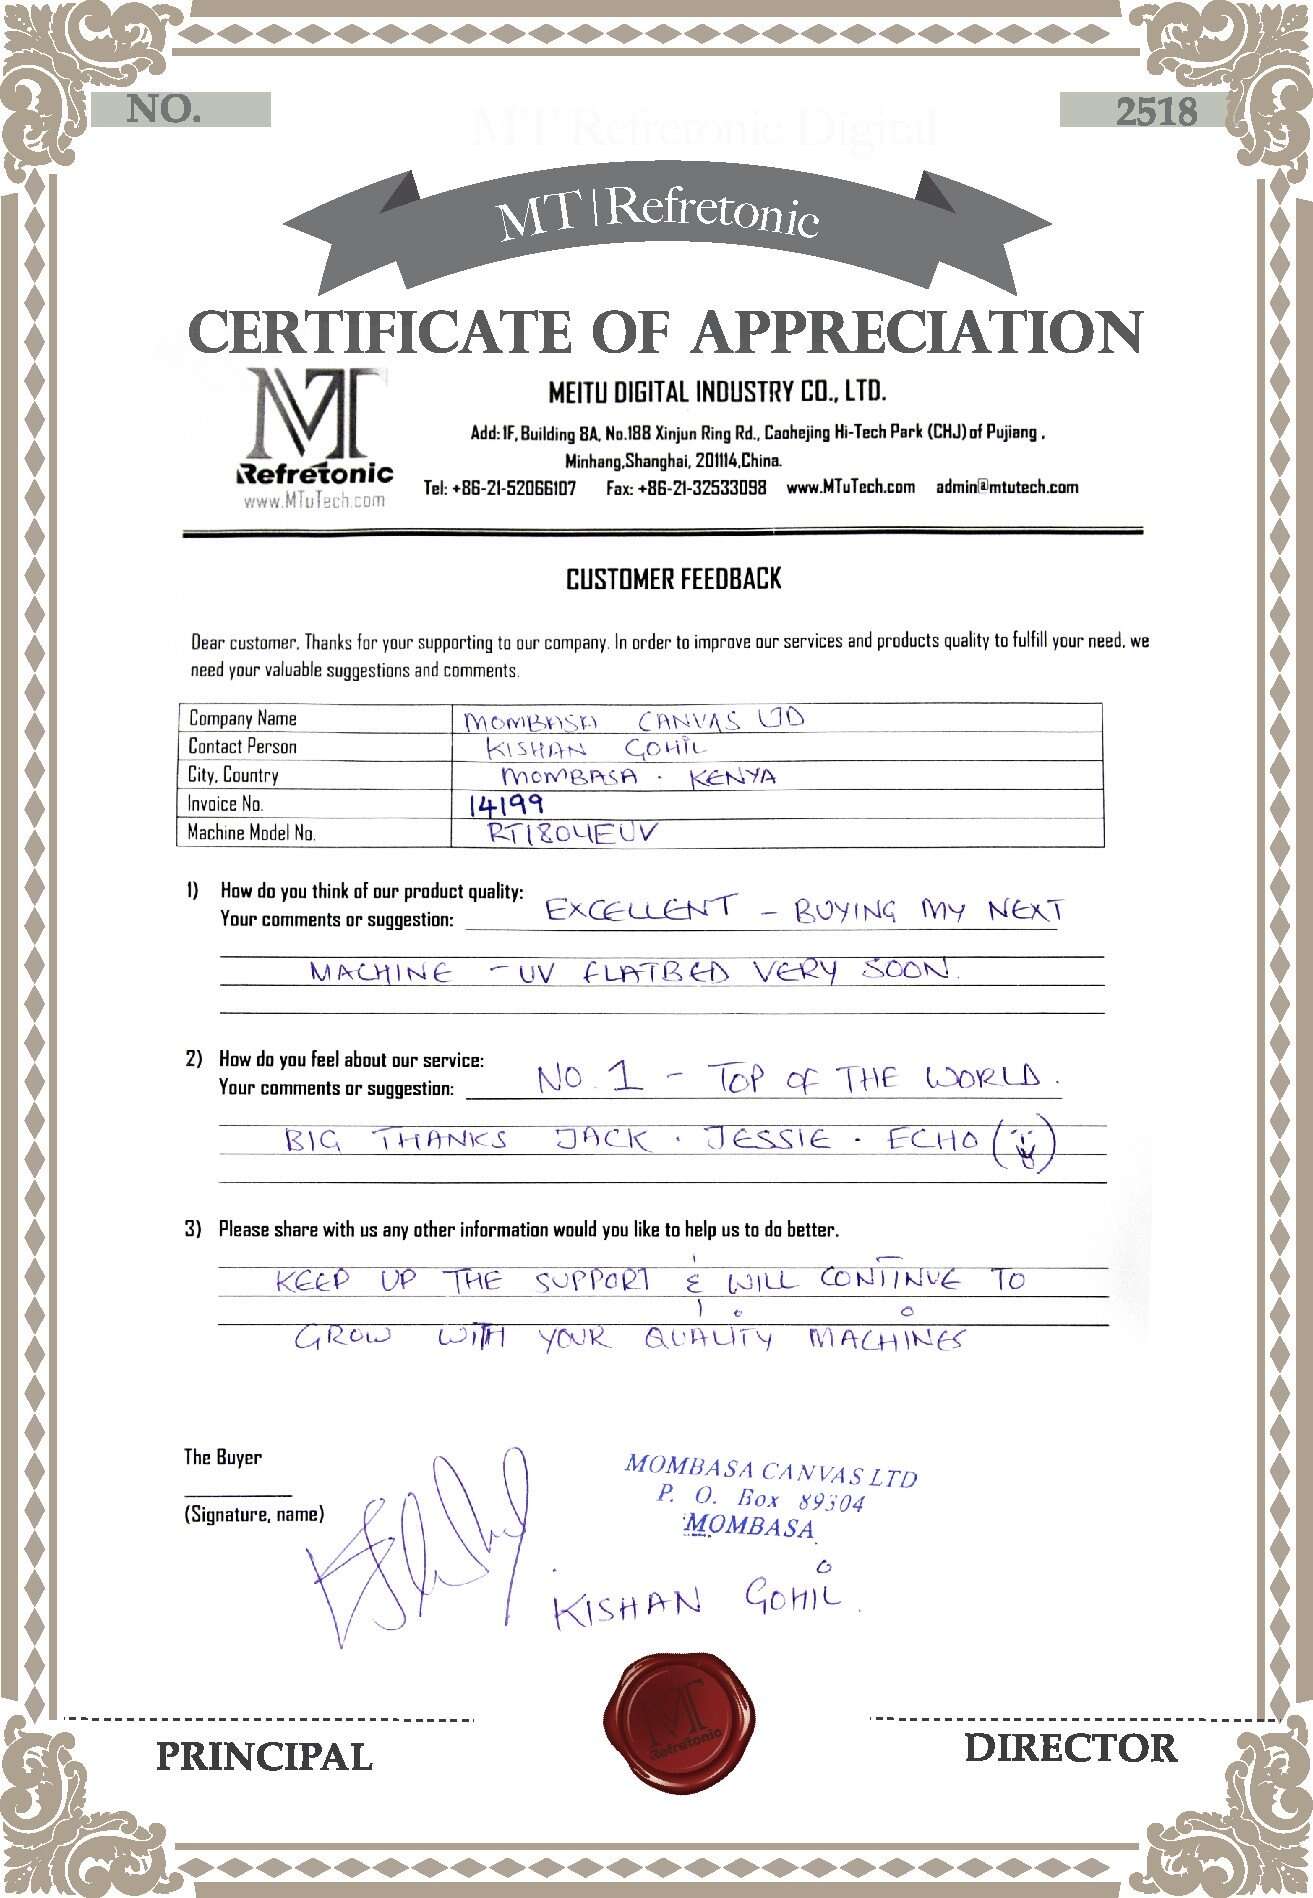 NO.
2518
MT Refretonic Digital
MT|Refretonic
CERTIFICATE OF APPRECIATION
MT
Refretonic
www.MTuTech.com
MEITU DIGITAL INDUSTRY CO., LTD.
Add: 1F, Building 8A, No.188 Xinjun Ring Rd., Caohejing Hi-Tech Park (CHJ) of Pujiang .
Minhang,Shanghai, 201114,China.
Tel: +86-21-52066107 Fax: +86-21-32533098 www.MTuTech.com admin@mtutech.com
CUSTOMER FEEDBACK
Dear customer, Thanks for your supporting to our company. In order to improve our services and products quality to fulfill your need, we
need your valuable suggestions and comments.
Company Name MOMBASA CANVAS LTD
Contact Person KISHAN GOHIL
City, Country MOMBASA . KENYA
Invoice No. 14199
Machine Model No. RT1804EUV
1) How do you think of our product quality:
Your comments or suggestion: EXCELLENT - BUYING MY NEXT
MACHINE - UV FLATBED VERY SOON.
2) How do you feel about our service:
Your comments or suggestion: NO. 1 - TOP OF THE WORLD.
BIG THANKS JACK . JESSIE . ECHO
3) Please share with us any other information would you like to help us to do better.
KEEP UP THE SUPPORT & I WILL CONTINUE TO
GROW WITH YOUR QUALITY MACHINES
The Buyer
(Signature, name)
MOMBASA CANVAS LTD
P. O. Box 89304
MOMBASA
KISHAN GOHIL.
MT
Refretonic
PRINCIPAL
DIRECTOR